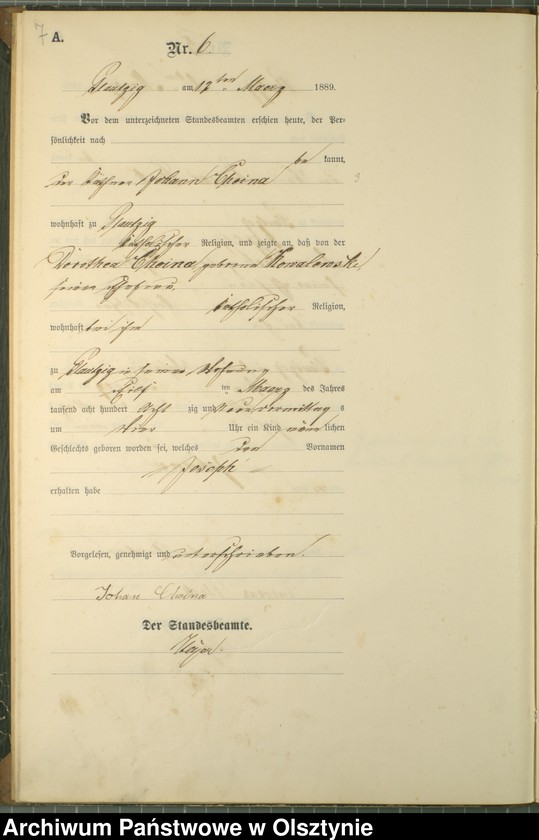 7 A.
Nr. 6
Plautzig am 12ten Maerz 1889.
Vor dem unterzeichneten Standesbeamten erschien heute, der Per-
sönlichkeit nach
be kannt,
der Käthner Johann Choina
wohnhaft zu Plautzig
katholischer Religion, und zeigte an, daß von der
Dorothea Choina geborene Kowalewski
seiner Ehefrau
katholischer Religion,
wohnhaft bei ihm
zu Plautzig in seiner Wohnung
am Eilf ten Maerz des Jahres
tausend acht hundert Acht zig und Neun Vormittag s
um Uhr ein Kind männ lichen
Geschlechts geboren worden sei, welches den Vornamen
Joseph
erhalten habe
Vorgelesen, genehmigt und unterschrieben.
Johan Choina
Der Standesbeamte.